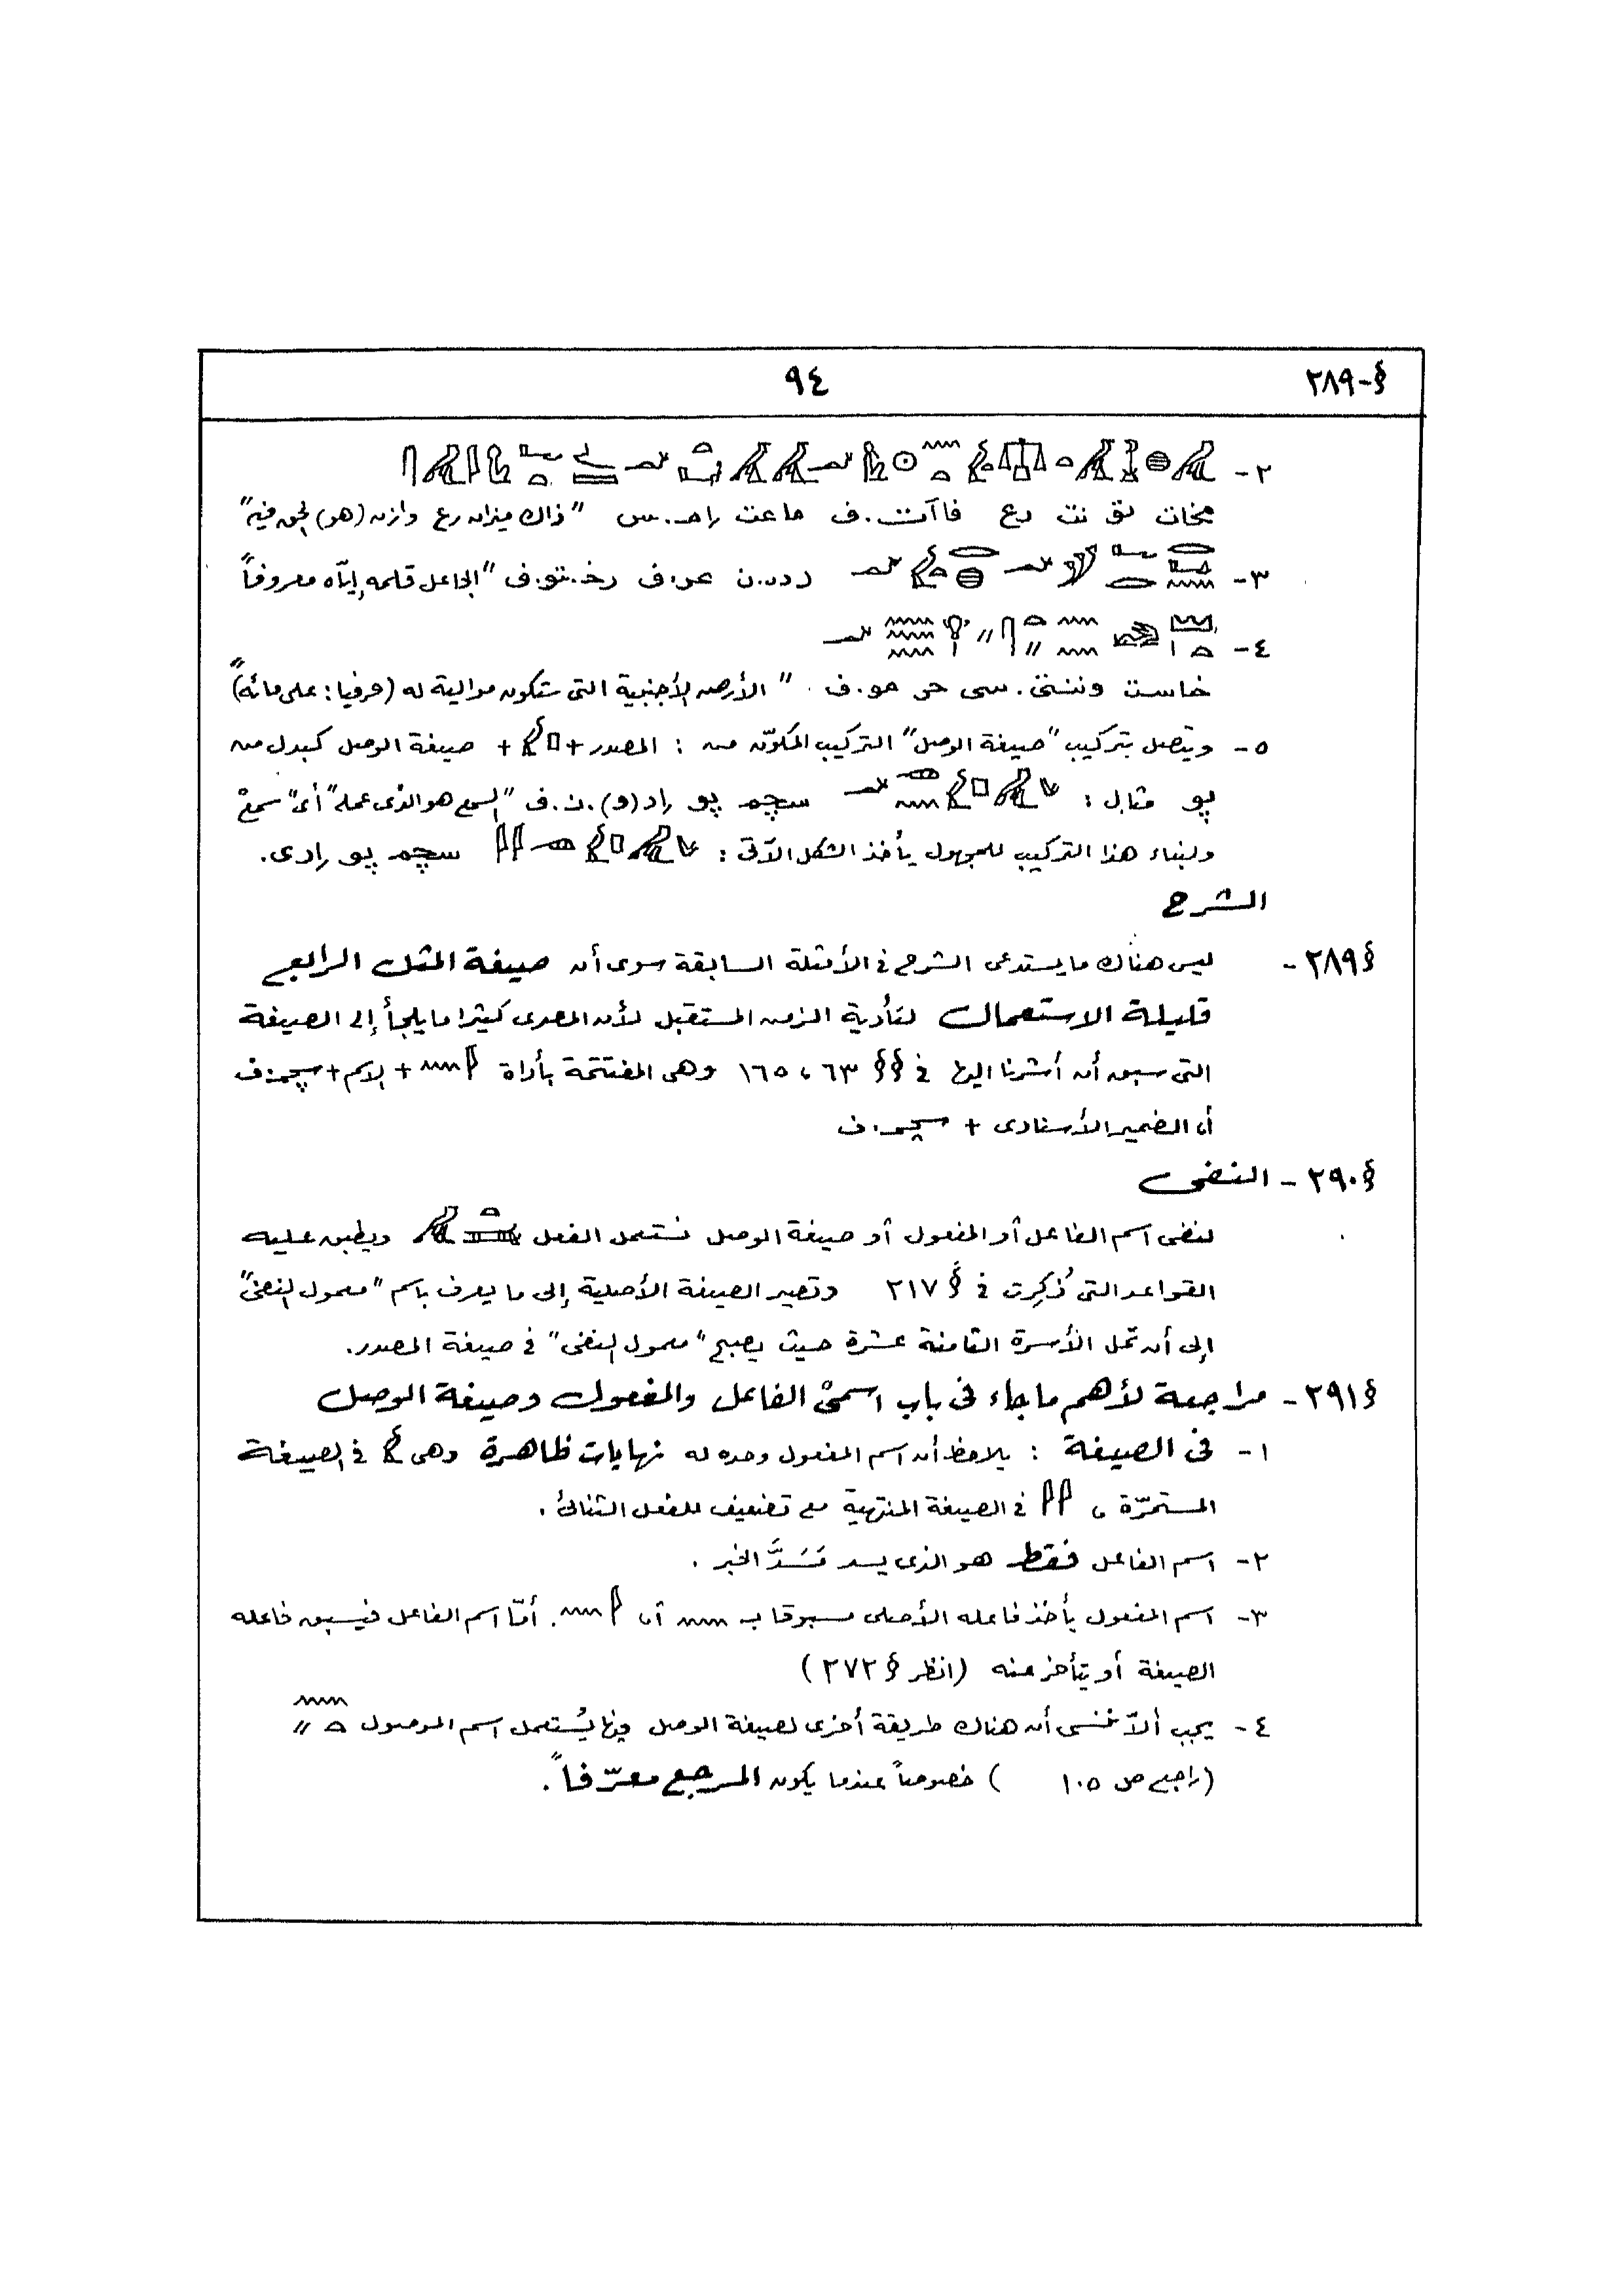 §-٢٨٩
٩٤
٢-
مخات تو نت رع فاآت.ف ماعت رام.س "ذاك ميزان رع وازن (هو) الحق فيه"
٣-
ردد.ن عر.ف رخ.تو.ف "الجاعل قلمه إيّاه معروفاً"
٤-
خاست وننتى.سى حر مو.ف. "الأرض الأجنبية التى ستكون موالية له (حرفيا: على مائه)"
٥- ويتصل بتركيب "صيغة الوصل" التركيب المكوّن من: المصدر + + صيغة الوصل كبدل من
پو مثال: سچم پو راد(و).ن.ف "السمع هو الذى عمله" أى "سمع"
ولبناء هذا التركيب للمجهول يأخذ الشكل الآتى: سچم پو رادى.
الشرح
§٢٨٩- ليس هناك ما يستدعى الشرح فى الأمثلة السابقة سوى أن صيغة المثل الرابع
قليلة الاستعمال لتأدية الزمن المستقبل لأن المصرى كثيرا ما يلجأ إلى الصيغة
التى سبق أن أشرنا إليها فى §§ ٦٣، ١٦٥ وهى المفتتحة بأداة + الاسم + سچم.ف
أو الضمير الأسنادى + سچم.ف
§٢٩٠- النفى
لنفى اسم الفاعل أو المفعول أو صيغة الوصل نستعمل الفعل ويطبق عليه
القواعد التى ذُكِرت فى § ٢١٧ وتصير الصيغة الأصلية إلى ما يعرف باسم "معمول النفى"
إلى أن تحل الأسرة الثامنة عشرة حيث يصبح "معمول النفى" فى صيغة المصدر.
§٢٩١- مراجعة لأهم ما جاء فى باب اسمىْ الفاعل والمفعول وصيغة الوصل
١- فى الصيغة: يلاحظ أن اسم المفعول وحده له نهايات ظاهرة وهى فى الصيغة
المستمرّة، فى الصيغة المنتهية مع تضعيف للفعل الثنائى.
٢- اسم الفاعل فقط هو الذى يسد مَسَدَّ الخبر.
٣- اسم المفعول يأخذ فاعله الأصلى مسبوقا بـ أو . أمّا اسم الفاعل فيسبق فاعله
الصيغة أو يتأخر عنه (انظر § ٢٧٢)
٤- يجب ألاّ ننسى أن هناك طريقة أخرى لصيغة الوصل فيها يُستعمل اسم الموصول
(راجع ص ١٠٥ ) خصوصاً عندما يكون المرجع معرّفاً.